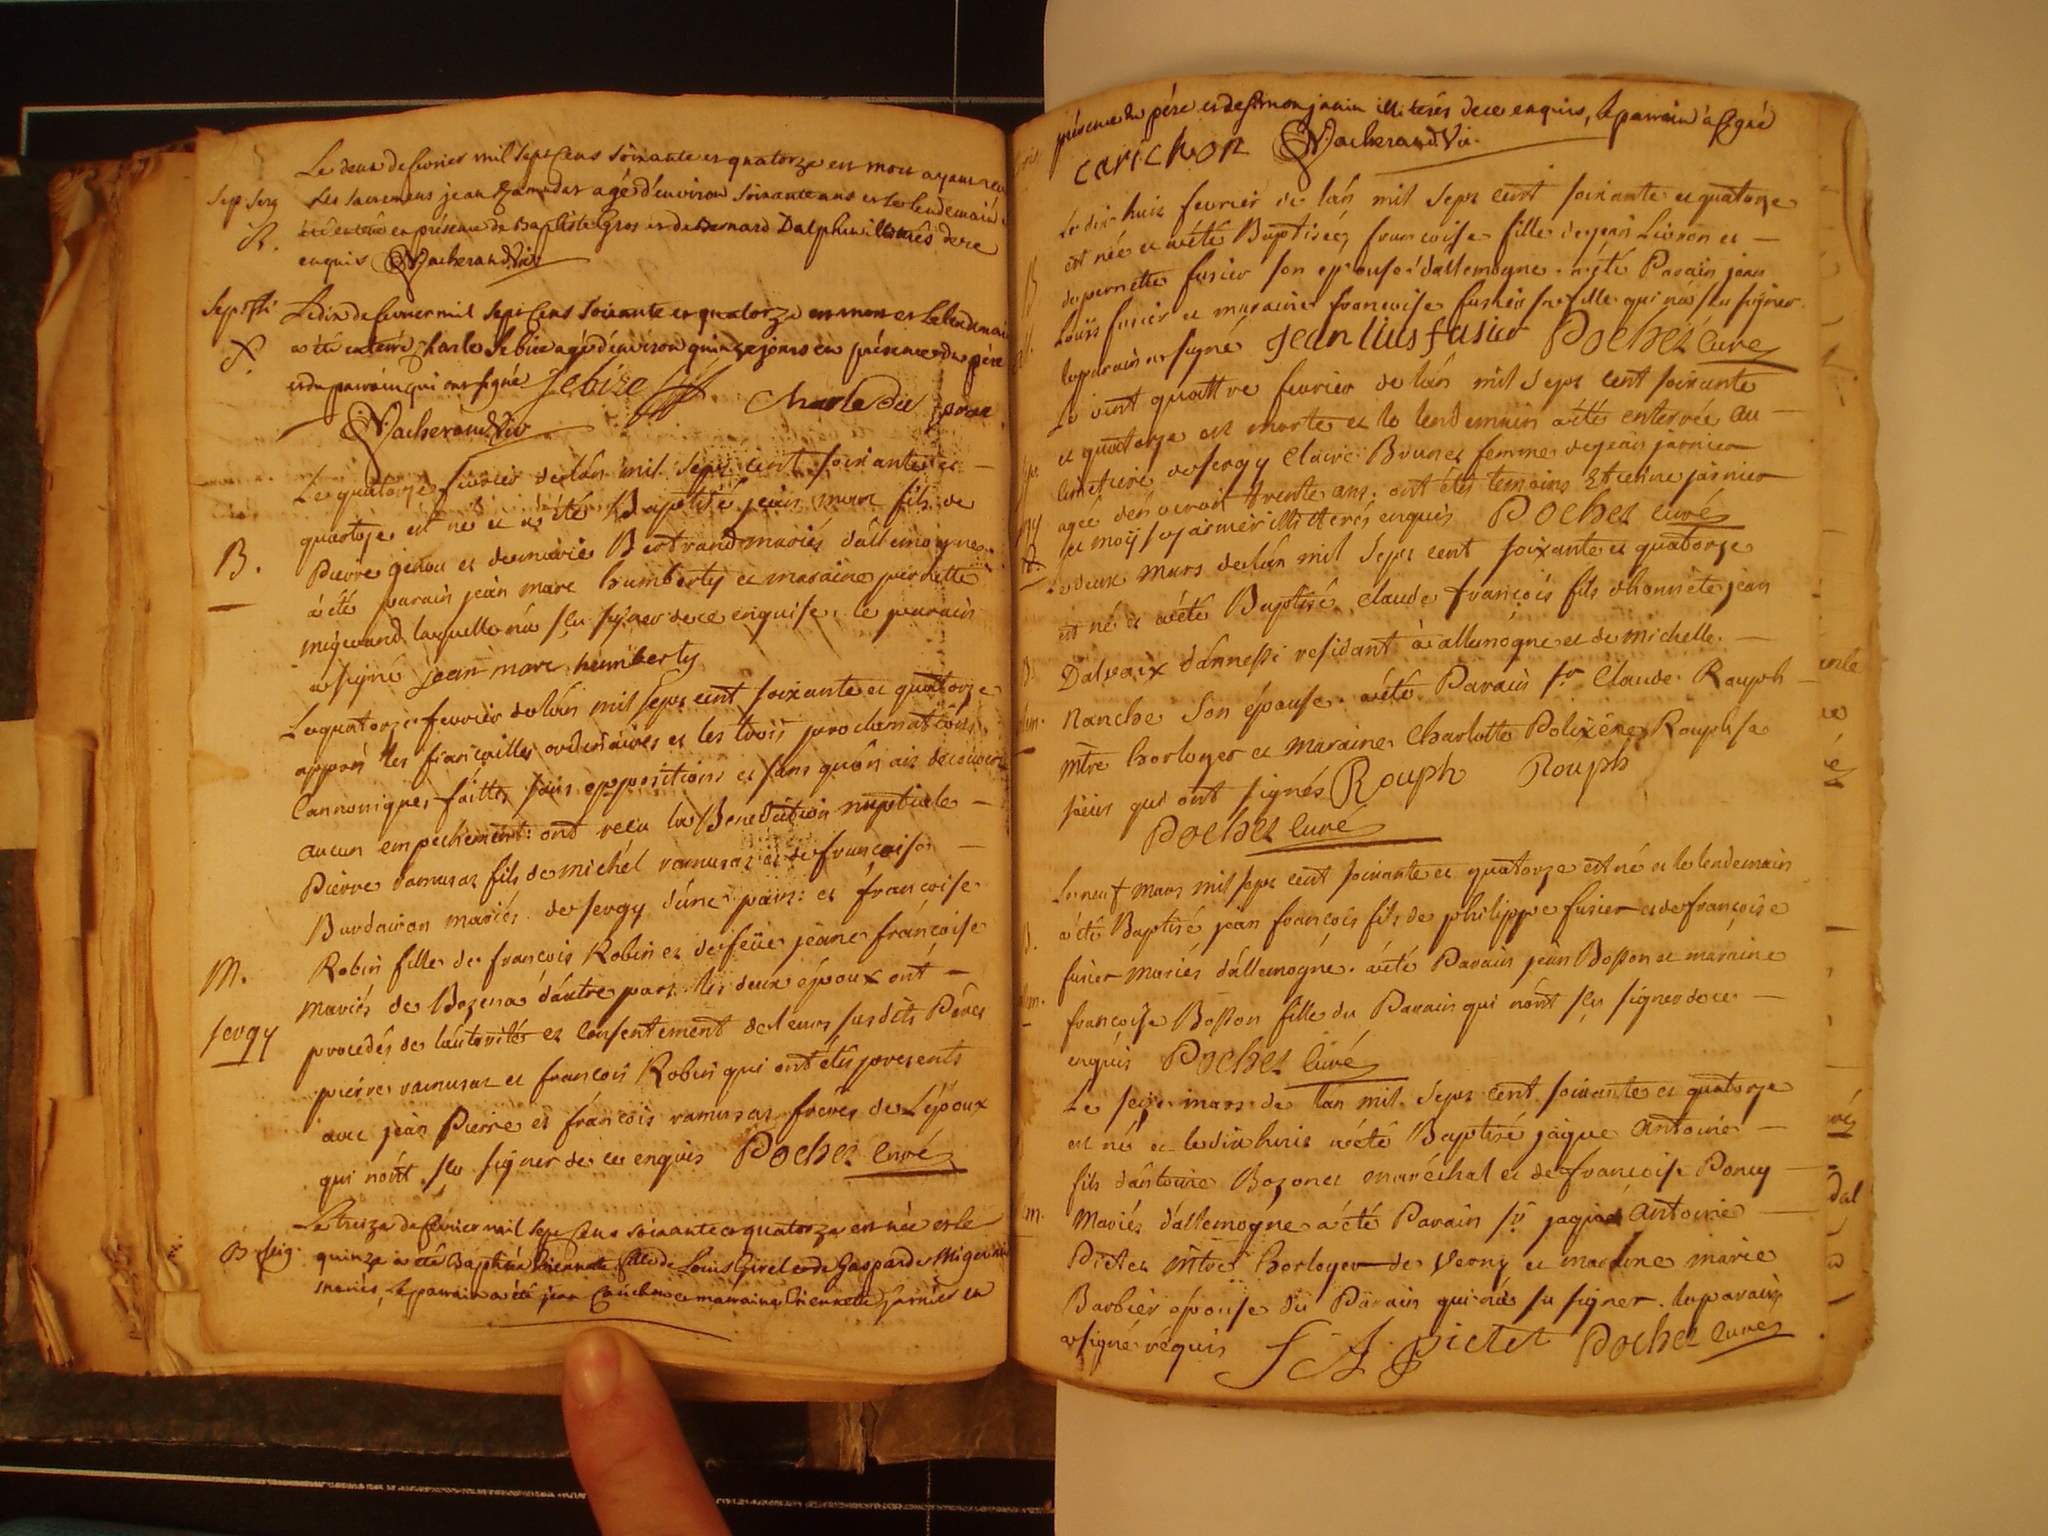 Le deux de fevrier mil sept cens soixante et quatorze est mort ayant reçu
sep. serg
les sacremens jean Ramusat agé d'environ soixante ans et le lendemain a
S.
été enterré en présence de Baptiste Gros et de Bernard Dalphin illiterés de ce
enquis Vacherand Vic.
Le dix de fevrier mil sept cens soixante et quatorze est mort et le lendemain
a été enterré charle Jebire agé d'environ quinze jours en présence du père
S.
et du parrain qui ont signé Jebire charle
Vacherand Vic
Le quatorze fevrier de lán mil sept cent soixante et —
quatorze est né et a été Baptisé jean marc fils de
B.
Pierre genou et de marie Bertrand mariés d'allemogne.
a été parain jean marc humberty et maraine pernette
migerand laquelle n'a sçu signer de ce enquise. le parain
a signé jean marc humberty
Le quatorze fevrier de lán mil sept cent soixante et quatorze
apprès les fiançailles ordinaires et les trois proclamations
Cannoniques faittes sans opposition et sans qu'on ait decouvert
aucun empechement: ont reçu la Benediction nuptiale —
Pierre ramusat fils de michel ramusat et de françoise —
Burdairon mariés de sergy d'une part: et françoise
M.
Robin fille de françois Robin et de feüe jeane françoise
mariés de Bozena d'autre part. les deux époux ont —
sergy
procedés de l'autorité et consentement de leurs susdits Pères
pierre ramusat et françois Robin qui ont étés presents
avec jean Pierre et françois ramusat frères de L'époux
qui n'ont sçu signer de ce enquis Pochet Curé
Le treize de fevrier mil sept cens soixante et quatorze est née et le
B. serg.
quinze a été Baptisée Etiennette fille de Louis Girel et de Gasparde Migerand
mariés, Le parrain a été jean Carichon et marraine Etiennette Garnier en
présence du père et de Simon janin illiterés de ce enquis, le parrain a signé
carichon Vacherand Vic.
Le dix huit fevrier de lán mil sept cent soixante et quatorze
est née et a été Baptisée françoise fille de jean Livron et —
B
de pernette fusier son epouse d'allemogne. a été Parain jean
Louis fusier et maraine françoise fusier sa fille qui n'a sçu signer.
le parain a signé jean luis fusier Pochet Curé
Le vint quattre fevrier de lán mil sept cent soixante
et quatorze est morte et le lendemain a été enterrée au —
cimetiere de sergy Claire Brunet femme de jean jarnier
agée denviron trente ans. ont étés temoins Etienne jarnier
et illitterés enquis Pochet curé
Le deux mars de lán mil sept cent soixante et quatorze
est né et a été Baptisé Claude françois fils d'honnête jean
B.
Dalvaix d'annessi residant à allemogne et de michelle —
Nanche son épouse. a été Parain sr Claude Rouph —
mtre horloger et maraine Charlotte Polixène Rouph sa
sœur qui ont signés Rouph Rouph
Pochet Curé
Le neuf mars mil sept cent soixante et quatorze est né et le lendemain
a été Baptisé jean françois fils de philippe fusier et de françoise
fusier mariés d'allemogne. a été Parain jean Bosson et maraine
françoise Bosson fille du Parain qui n'ont sçu signer de ce —
enquis Pochet Curé
Le seize mars de lán mil sept cent soixante et quatorze
est né et le dix huit a été Baptisé jaque Antoine —
fils d'antoine Bozonet maréchal et de françoise Poncy —
m.
Mariés d'allemogne a été Parain sr jaque Antoine —
Pictet mtre horloger de Verny et maraine marie
Barbier épouse du Parain qui n'a su signer. le parain
a signé réquis J A Pictet Pochet Curé